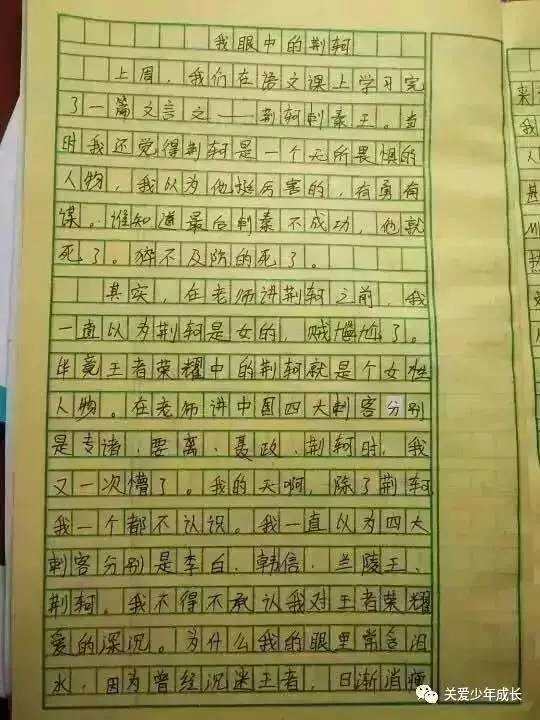 我眼中的荆轲
上周，我们在语文课上学习完
了一篇文言文——荆轲刺秦王。当
时我还觉得荆轲是一个无所畏惧的
人物，我认为他挺厉害的，有勇有
谋。谁知道最后刺秦不成功，他就
死了。猝不及防的死了。
其实，在老师讲荆轲之前，我
一直以为荆轲是女的，贼尴尬了。
毕竟王者荣耀中的荆轲就是个女性
人物。在老师讲中国四大刺客分别
是专诸、要离、聂政、荆轲时，我
又一次懵了。我的天啊，除了荆轲，
我一个都不认识。我一直以为四大
刺客分别是李白、韩信、兰陵王、
荆轲。我不得不承认我对王者荣耀
爱的深沉。为什么我的眼里常含泪
水，因为曾经沉迷王者，日渐消瘦
关爱少年成长